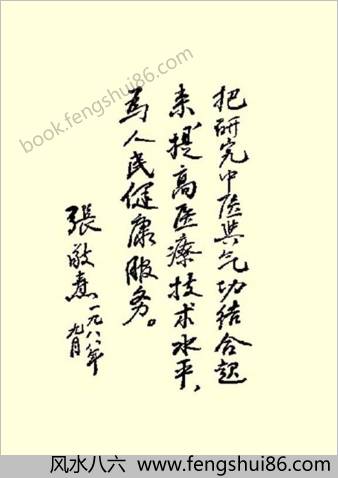 把研究中医与气功结合起
来，提高医疗技术水平，
为人民健康服务。
張敬焘
一九八八年
九月
book.fengshui86.com
风水八六 www.fengshui86.com